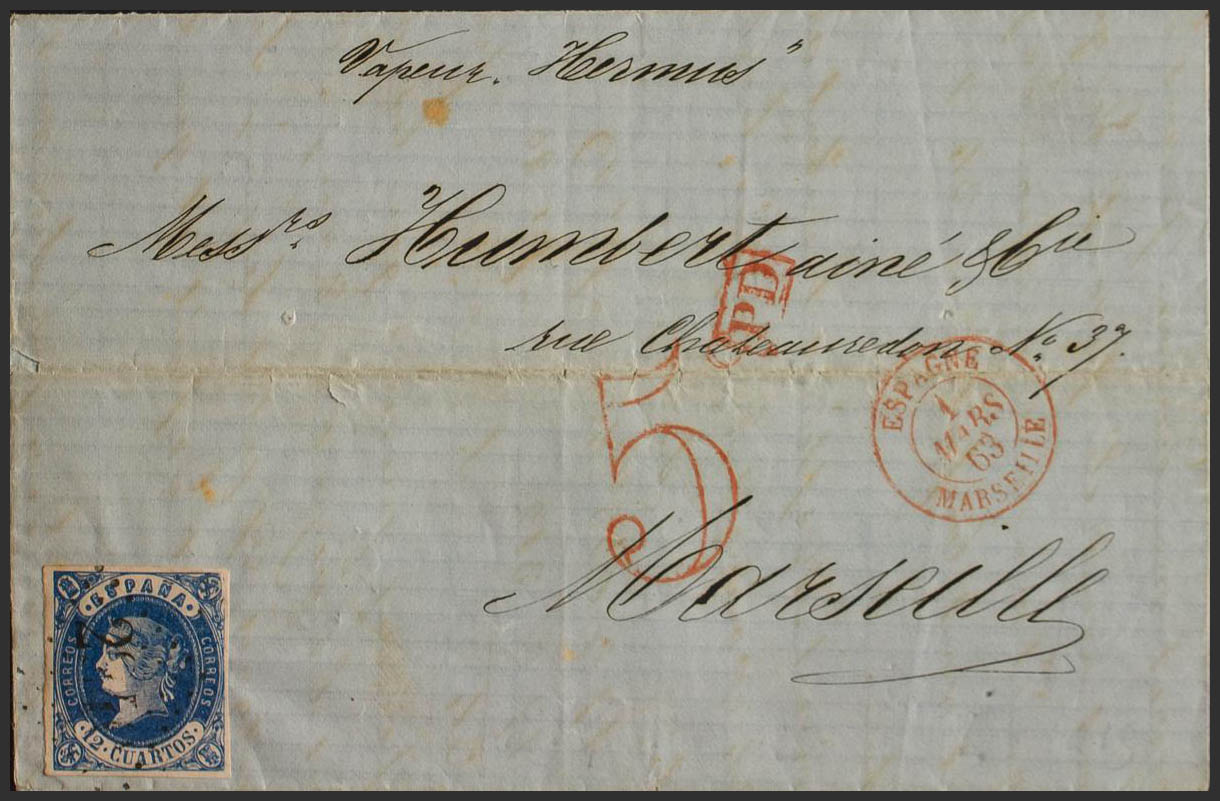 Vapeur „Hermus"
Mess.rs Humbert ainé & Cie
PD
rue Chateauredon No. 37.
5
ESPAGNE
1
MARS
63
MARSEILLE
Marseille
ESPAÑA
CORREOS
CORREOS
2
12 CUARTOS